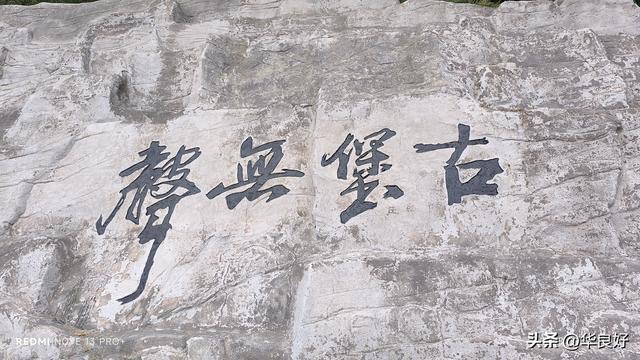 古堡無聲
REDMI NOTE 13 PRO+
头条 @华良好